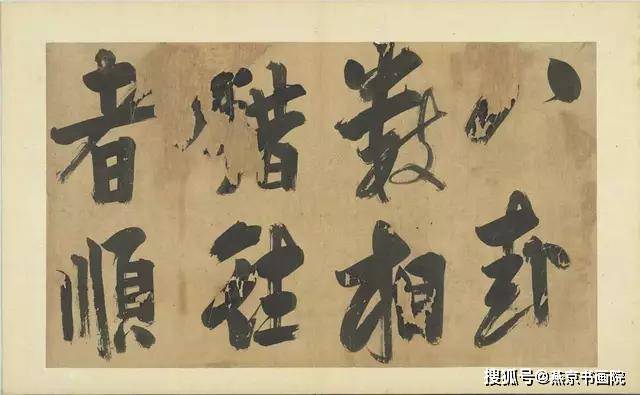 八卦
數相
錯往
者順
搜狐号@燕京书画院